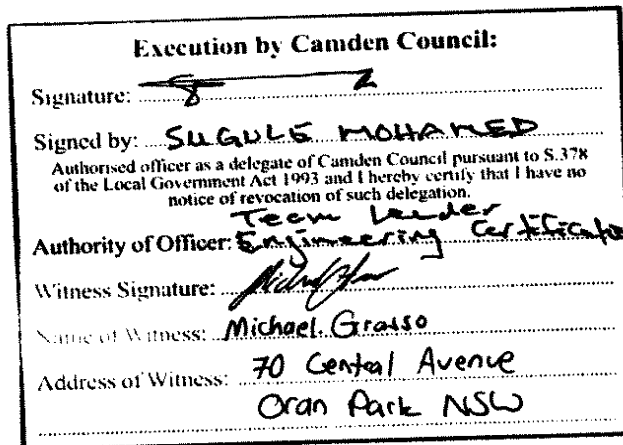 Execution by Camden Council:
Signature:
Signed by: SUGULE MOHAMED
Authorised officer as a delegate of Camden Council pursuant to S.378
of the Local Government Act 1993 and I hereby certify that I have no
notice of revocation of such delegation.
Team Leader
Authority of Officer: Engineering Certificatio
Witness Signature:
Name of Witness: Michael Grasso
Address of Witness: 70 Central Avenue
Oran Park NSW